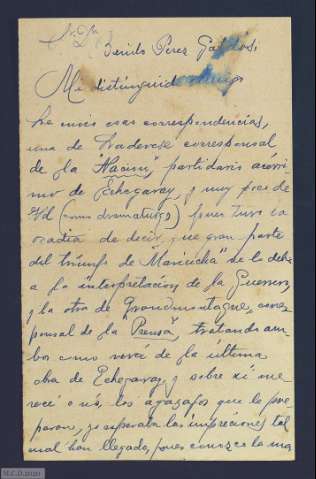 Benito Perez Galdós,
Mi distinguido amigo
he unas correspondencias,
una de Ladevese corresponsal
de la "Nación", partidario acérri-
mo de Echegaray, y muy poco de
Vd (como dramaturgo) pues tuvo la
osadia de decir, que gran parte
del triunfo de "Mariucha" se lo debe
a la interpretacion de la Guerrero,
y la otra de Grandmontagne, corres-
ponsal de la "Prensa", tratando am-
bos como verá de la última
obra de Echegaray, y sobre si me-
rece o nó, los agasajos que le pre-
paran, yo esperaba las impresiones tal
cual han llegado, pues conozco la ma
M.C.D. 2020